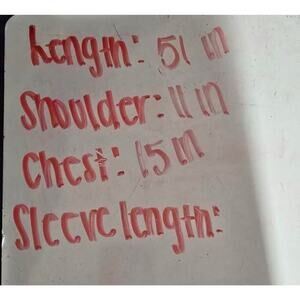 Length: 51 in
Shoulder: 11 in
Chest: 15 in
Sleeve length: